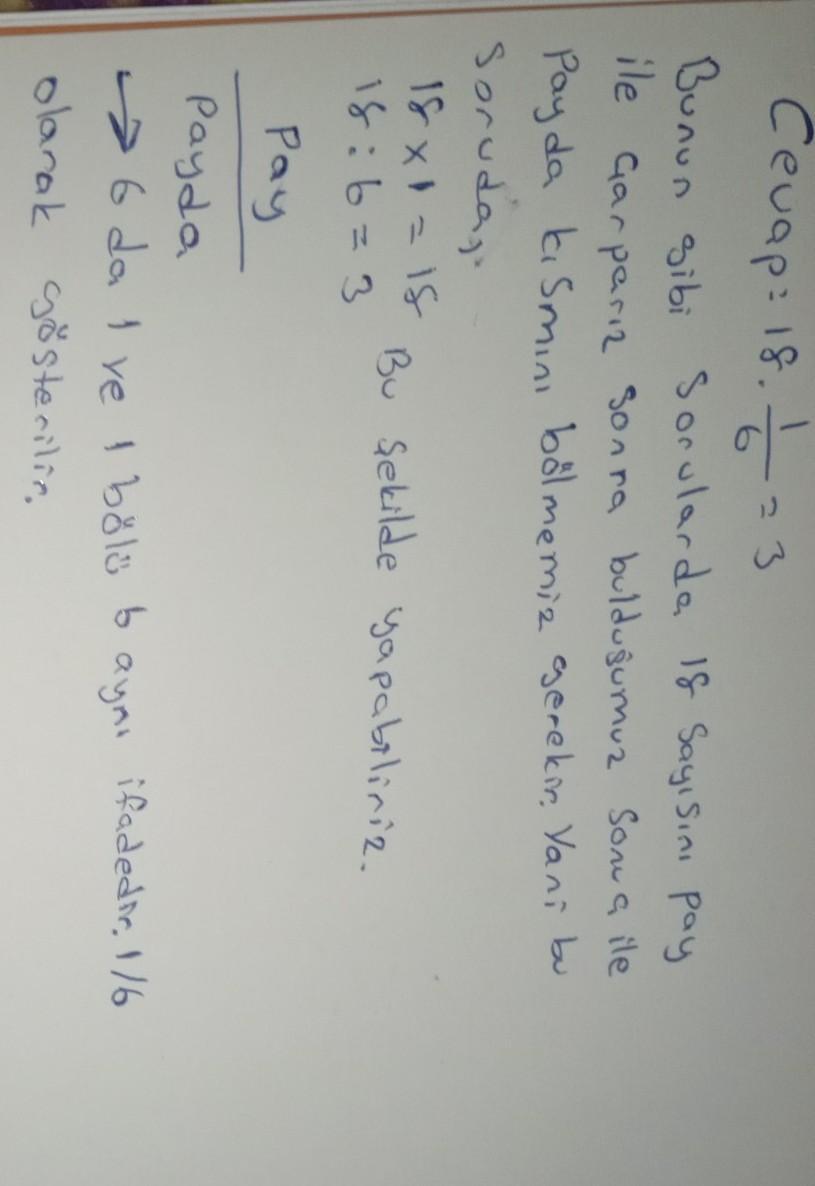 Cevap = 18 . 1/6 = 3
Bunun gibi sorularda 18 sayısını pay
ile çarparız sonra bulduğumuz sonuç ile
Payda kısmını bölmemiz gerekir. Yani bu
soruda,
18 x 1 = 18
18 : 6 = 3 Bu şekilde yapabiliriz.
Pay
Payda
→ 6 da 1 ve 1 bölü 6 aynı ifadedir. 1/6
olarak gösterilir.